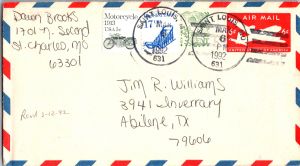 Dawn Brooks
1701 N. Second
St. Charles, MO
63301
Motorcycle
1913
USA 5c
SAINT LOUIS,
17
1992
631
SAINT LOUIS,
MAR
6
PM
1992
631
AIR MAIL
Jim R. Williams
3941 Inverrary
Abilene, TX
79606
Recd 3-12-92